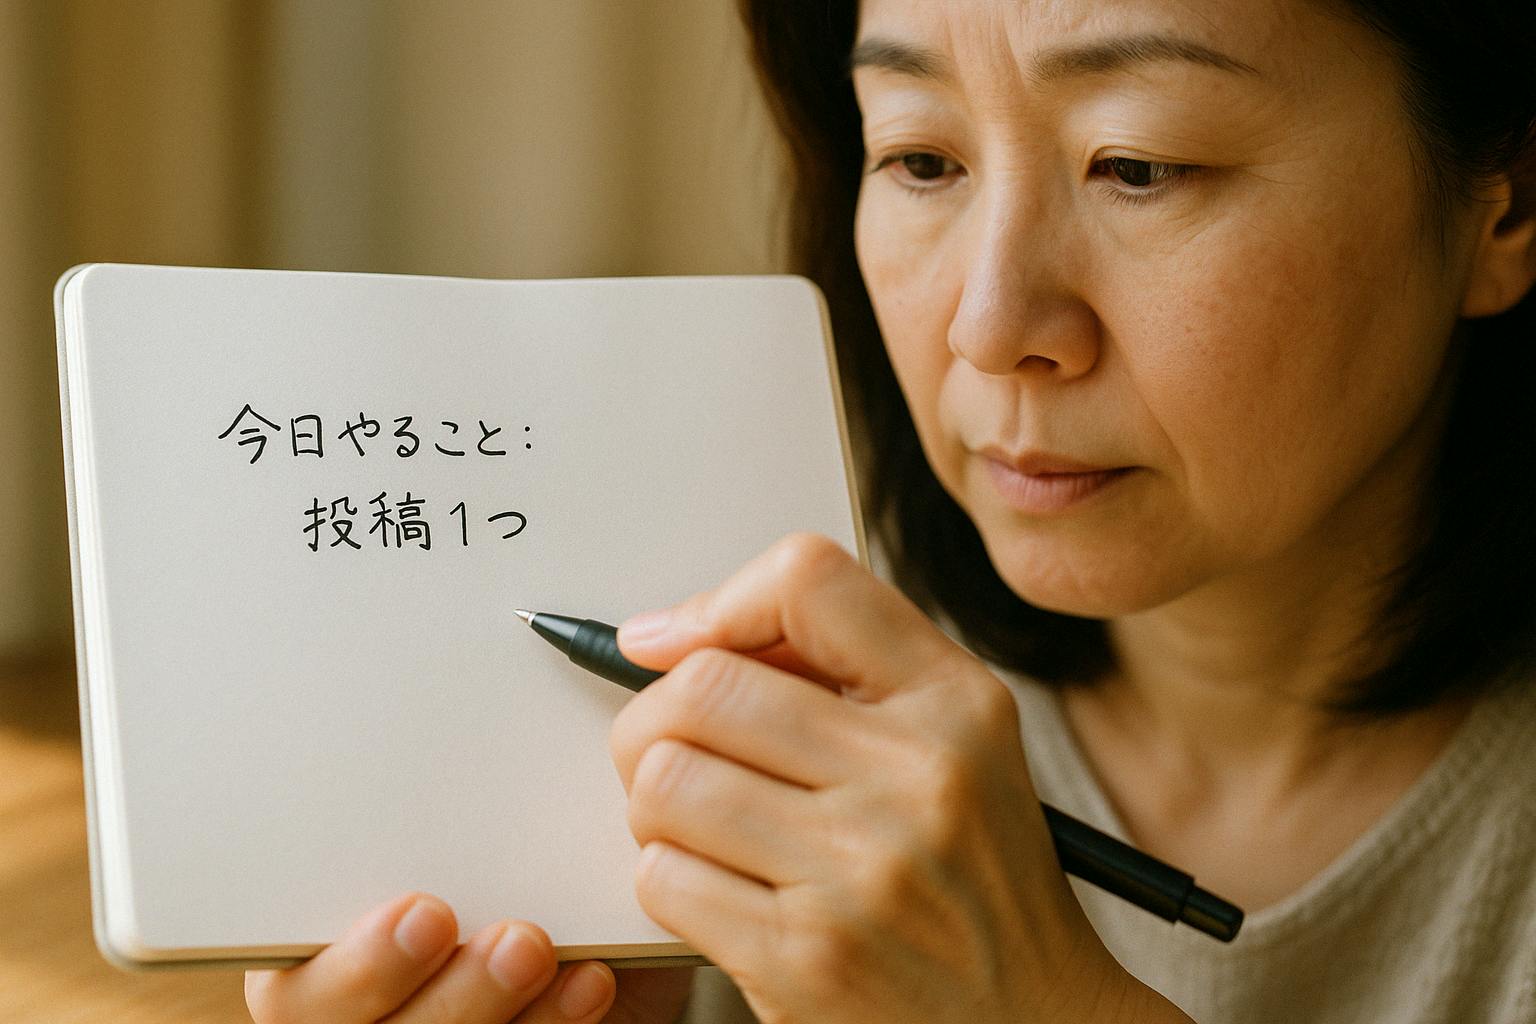 今日やること:
投稿1つ